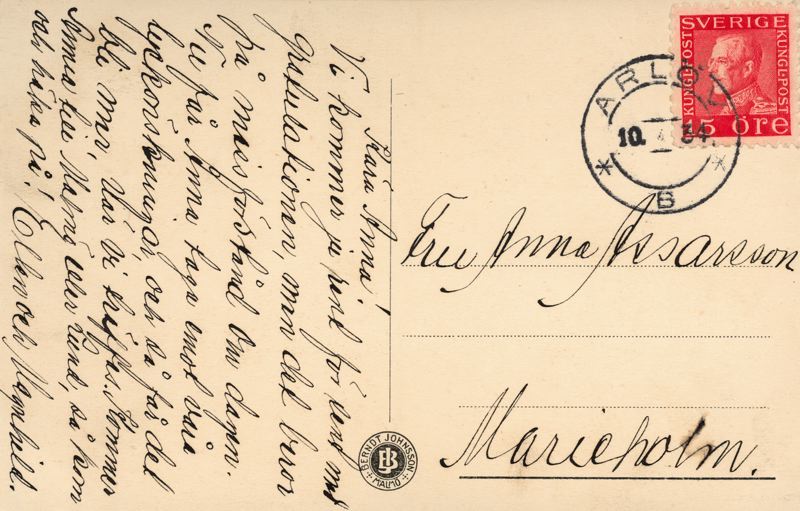 Kära Anna!
Vi kommer ju rent för sent med
gratulationen, men det beror
på missförstånd om dagen.
Nu får Anna taga emot våra
lyckönskningar, och så får det
bli mis, när vi träffas. Kommer
Annas till Malmö eller Lund, så kom
och hälsa på! Ellen och Magnhild.
SVERIGE
KUNGL. POST
KUNGL. POST
15 ÖRE
ARLÖV
10. 34.
B
Fru Anna Assarsson
Marieholm.
BERNDT JOHNSSON
BJ
MALMÖ